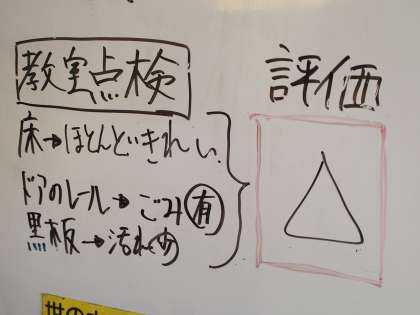 教室点検
評価
床→ほとんどきれい。
ドアのレール→ごみ有
黒板→汚れ少
△
世の